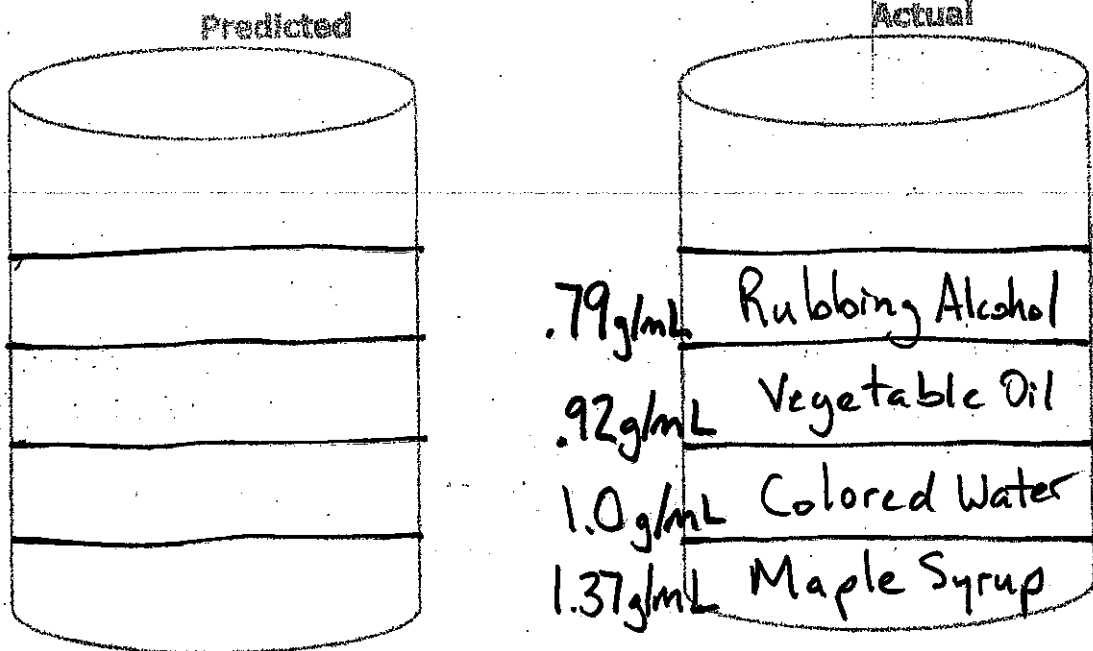 Predicted
Actual
.79g/mL Rubbing Alcohol
.92g/mL Vegetable Oil
1.0g/mL Colored Water
1.37g/mL Maple Syrup